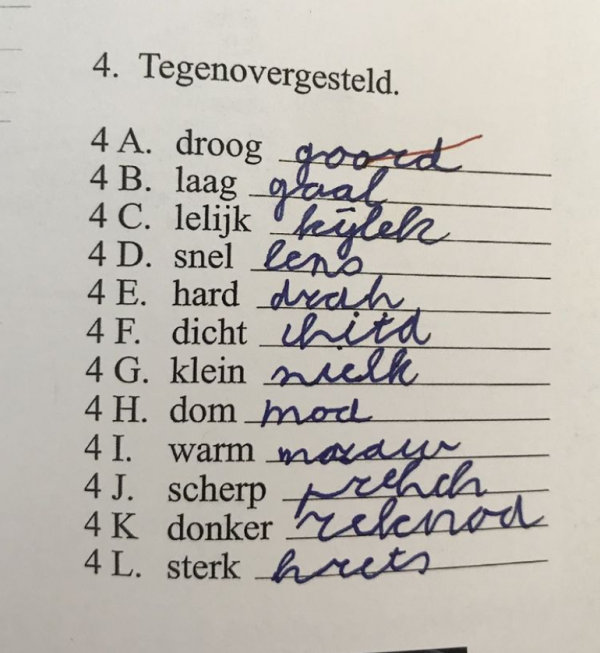 4. Tegenovergesteld.
4 A. droog goord
4 B. laag gaal
4 C. lelijk kijlek
4 D. snel lens
4 E. hard drah
4 F. dicht chitd
4 G. klein nielk
4 H. dom mod
4 I. warm mraw
4 J. scherp prehch
4 K donker reknod
4 L. sterk krets